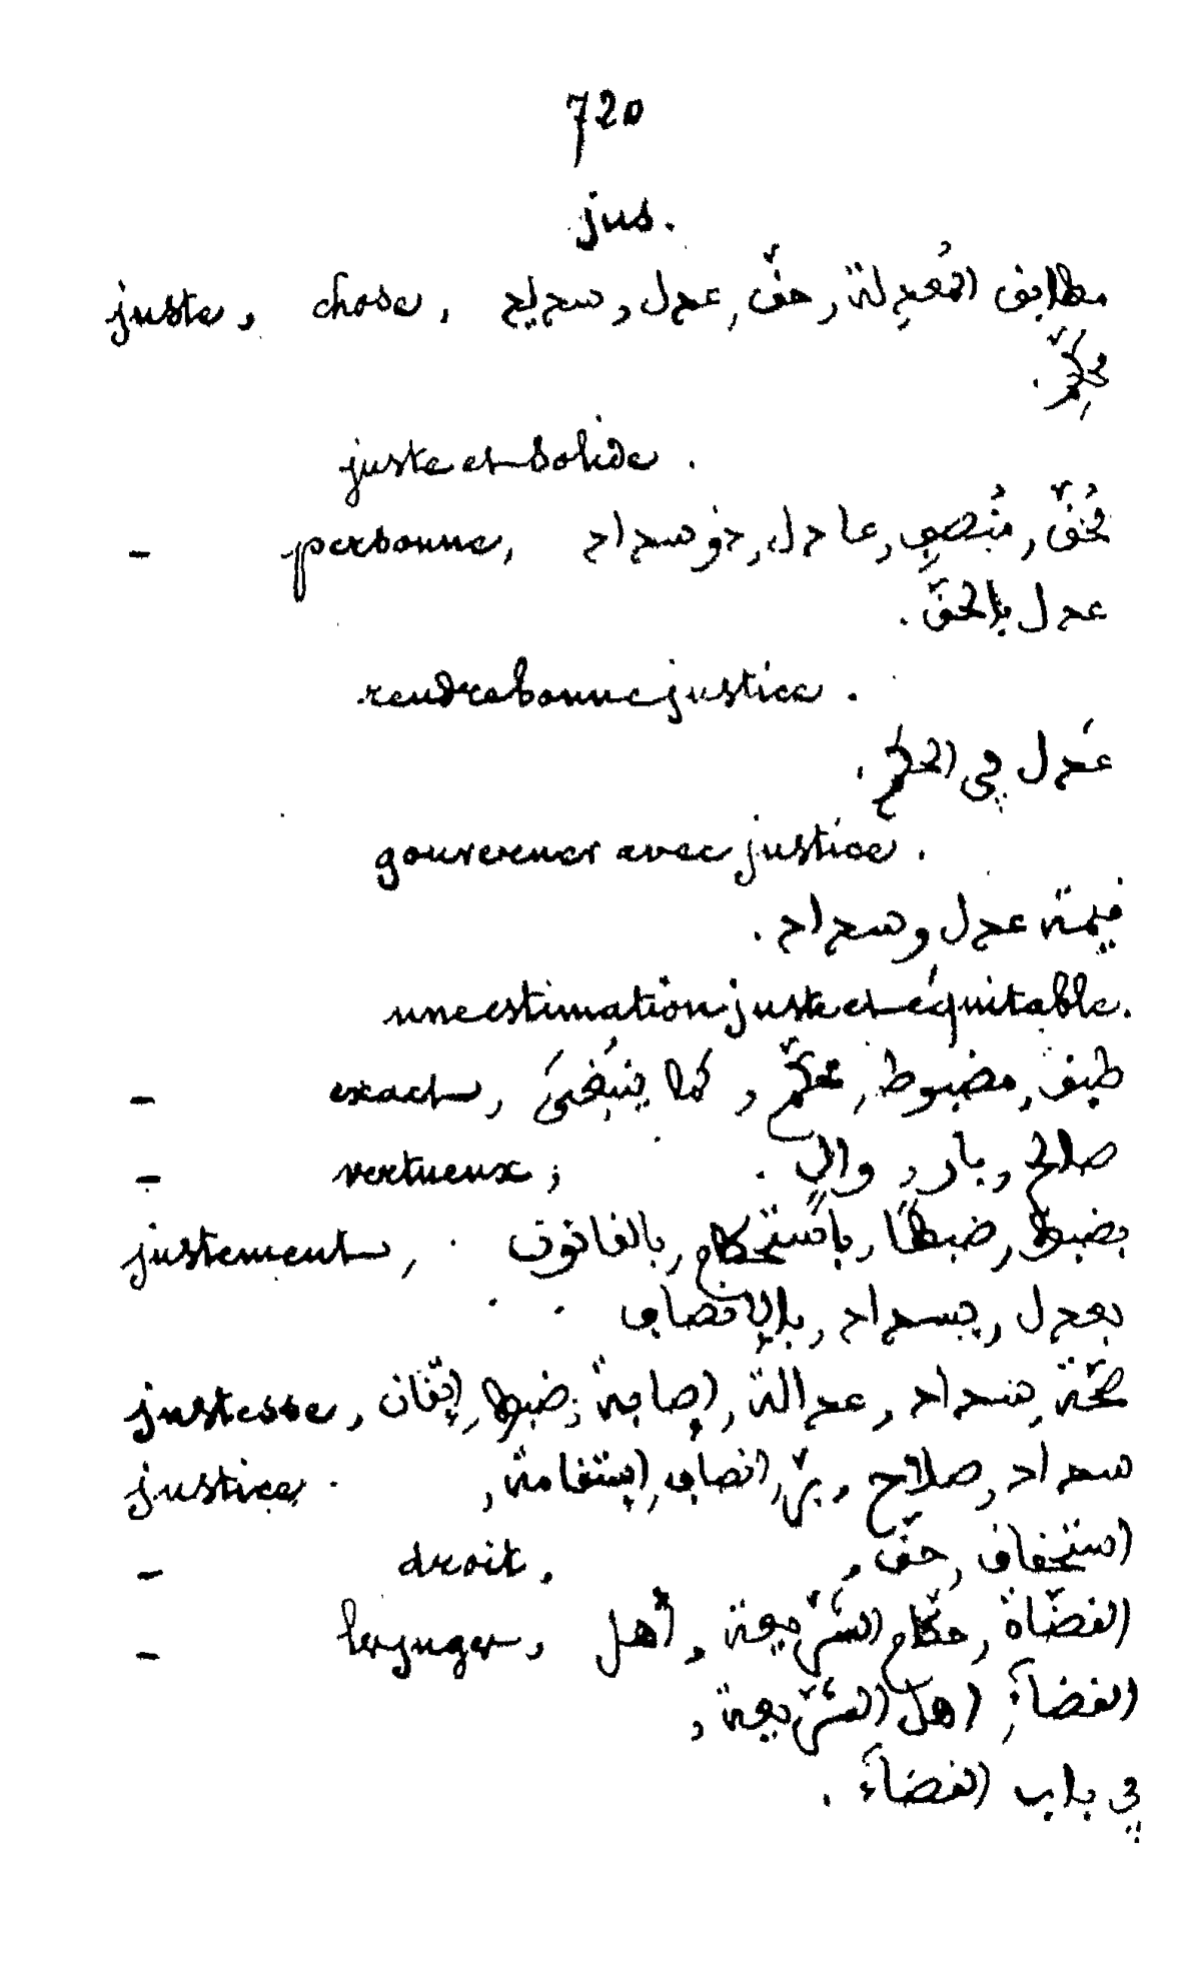 720
jus.
juste, chose, مطابق المَعدِلة, حقّ, عدل, سديد
مُحكَم.
juste et solide.
– personne, مُحِقّ, مُنصِف, عادل, ذو سداد
عدل بالحقّ.
rendre bonne justice.
عَدَل في الحكم.
gouverner avec justice.
قيمة عدل وسداد.
une estimation juste et équitable.
– exact, طبق, مضبوط, محكّم, كما ينبغى
– vertueux; صالح, بار,
justement, بضبط, ضبطًا, باستحكام, بالقانون
بعدل, بسداد, بالإنصاف
justesse, صحّة, سداد, عدالة, إصابة, ضبط, إتقان
justice, سداد, صلاح, برّ, انصاف, إستقامة,
– droit, استحقاق, حقّ,
– les juges, القضاة, حكّام الشّريعة, أهل
القضاءِ, اهل الشّريعة,
في باب القضاءَ.